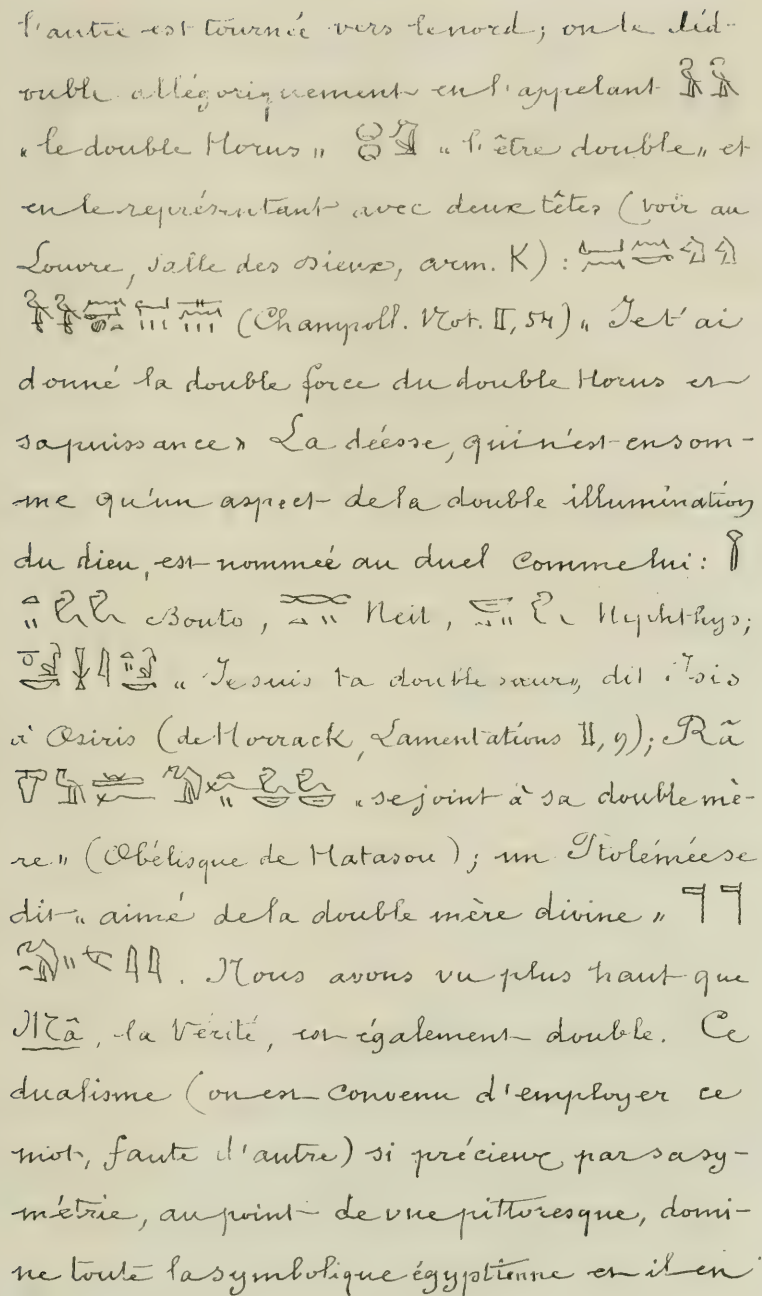 l'autre est tournée vers le nord ; on le déd-
ouble allégoriquement en l'appelant
« le double Horus » « l'être double » et
en le représentant avec deux têtes (voir au
Louvre, salle des dieux, arm. K) :
(Champoll. Not. II, 54) « Je t'ai
donné la double force du double Horus et
sa puissance » La déesse, qui n'est en som-
me qu'un aspect de la double illumination
du dieu, est nommée au duel comme lui :
Bouto, Neit, Nephthys ;
« Je suis ta double sœur », dit Isis
à Osiris (de Horrack, Lamentations II, 9) ; Râ
« se joint à sa double mè-
re » (Obélisque de Hatasou) ; un Ptolémée se
dit « aimé de la double mère divine »
. Nous avons vu plus haut que
Mâ, la Vérité, est également double. Ce
dualisme (on est convenu d'employer ce
mot, faute d'autre) si précieux par sa sy-
métrie, au point de vue pittoresque, domi-
ne toute la symbolique égyptienne et il en